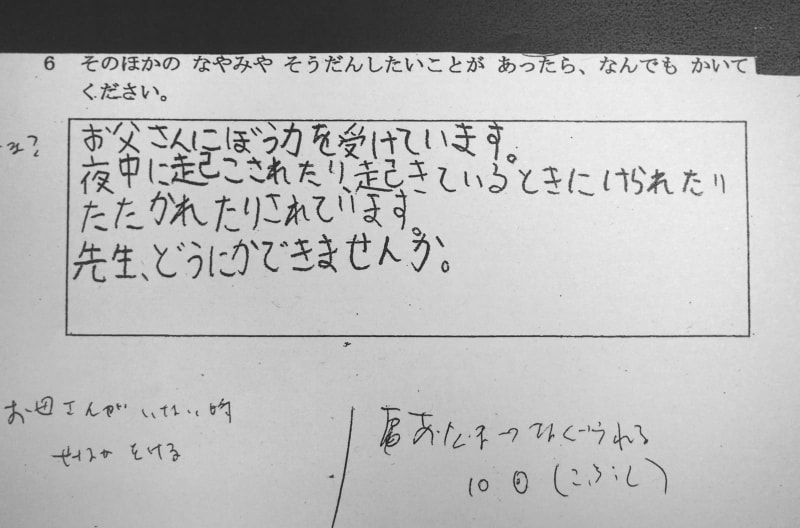 6 そのほかの なやみや そうだんしたいことが あったら、なんでも かいて
ください。
お父さんにぼう力を受けています。
夜中に起こされたり、起きているときにけられたり
たたかれたりされています。
先生、どうにかできませんか。
お母さんがいない時
せなかをける
あたまつなぐられる
10回(こぶし)